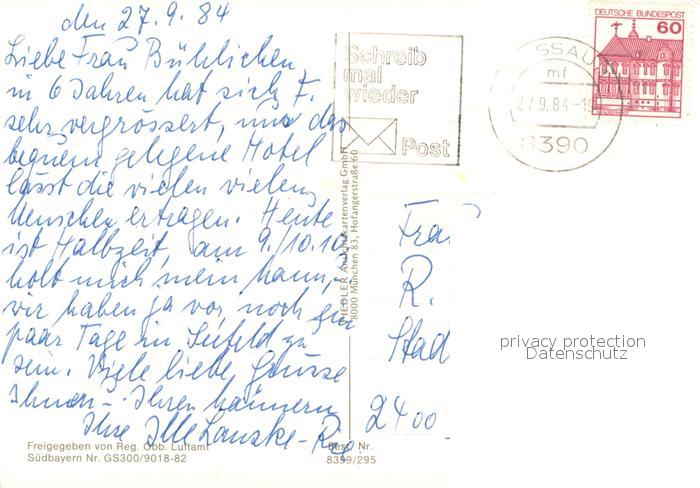 den 27.9.84
Liebe Frau Bühlichen
in 6 Jahren hat sich F.
sehr vergrössert, nur das
bequem gelegene Hotel
lässt die vielen vielen
Menschen ertragen. Heute
ist Halbzeit, am 9./10.10
holt mich mein Mann,
wir haben ja vor, noch ein
paar Tage in Seefeld zu
sein. Viele liebe Grüsse
Ihnen - Ihren Männern
Ihre
Schreib
mal
wieder
Post
SSAU
mf
27.9.84-1
8390
DEUTSCHE BUNDESPOST
60
FIEDLER Ansichtskartenverlag GmbH
8000 München 83, Hofangerstraße 60
Frau
R.
Stad
2400
privacy protection
Datenschutz
Freigegeben von Reg. Obb. Luftamt
Südbayern Nr. GS300/9018-82
Best. Nr.
8399/295